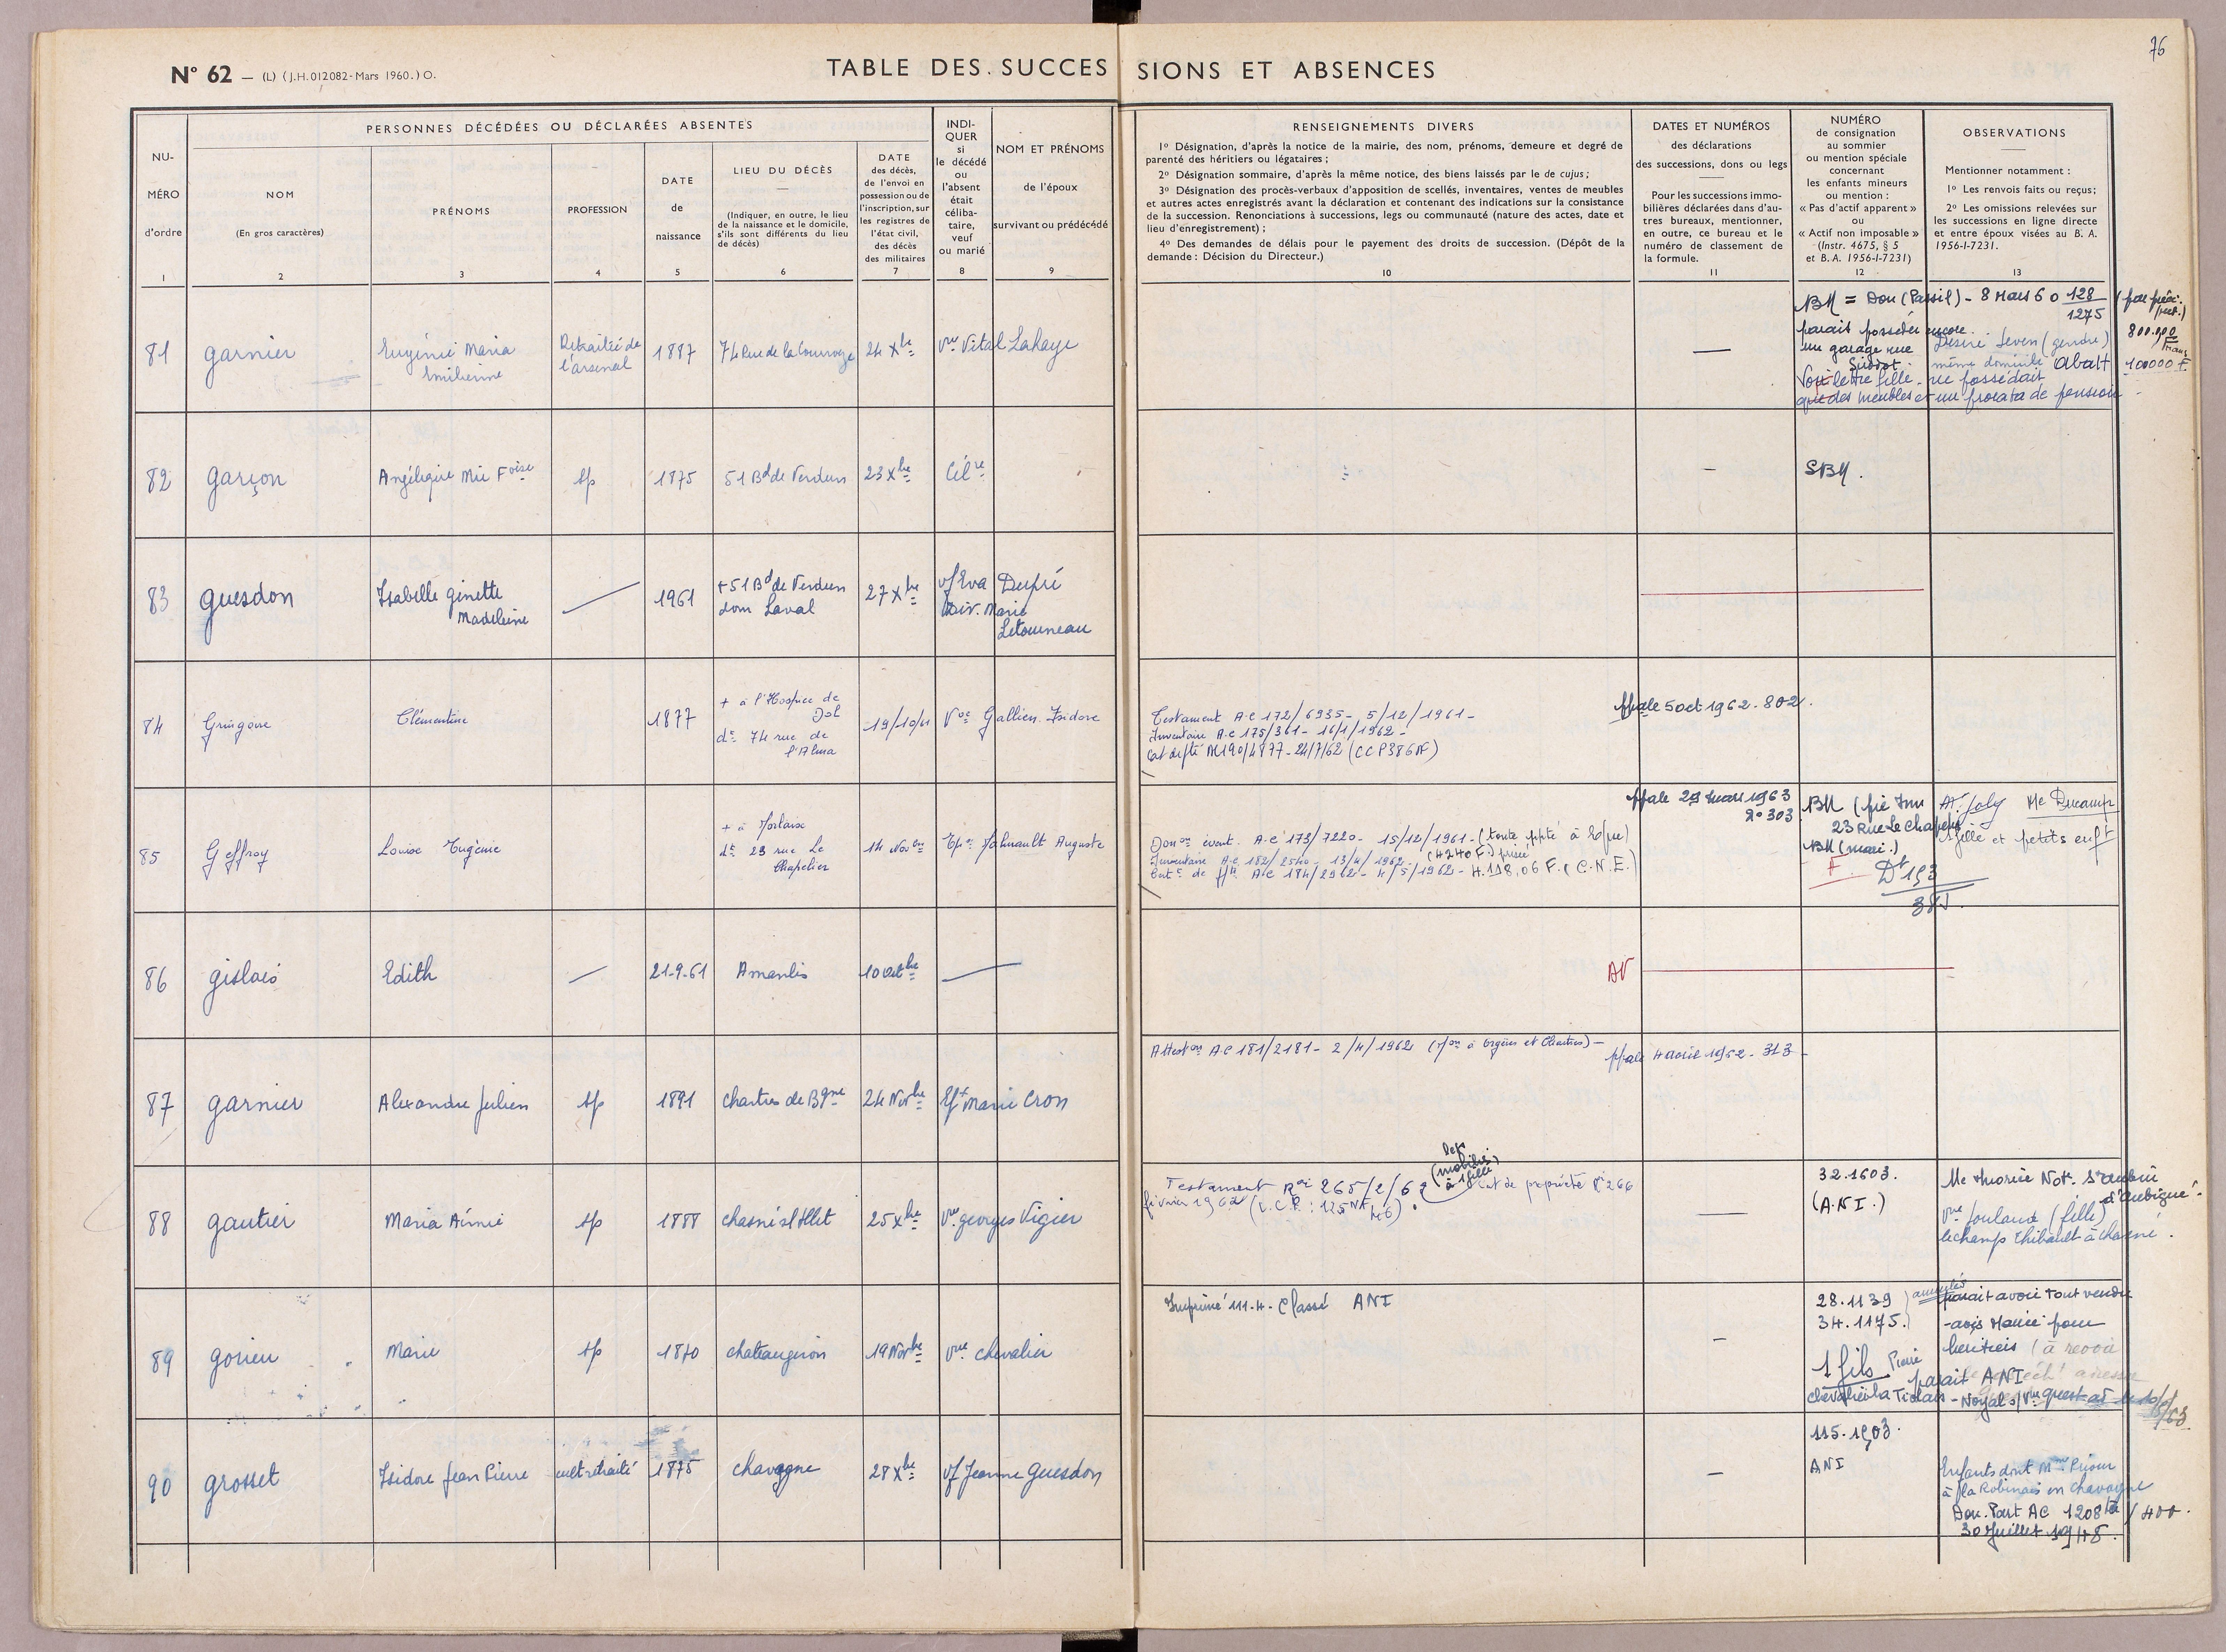 76
N° 62 — (L) (J.H. 012082-Mars 1960.) O.
TABLE DES SUCCESSIONS ET ABSENCES
NU-
MÉRO
d'ordre
1
PERSONNES DÉCÉDÉES OU DÉCLARÉES ABSENTES
NOM
(En gros caractères)
2
PRÉNOMS
3
PROFESSION
4
DATE
de
naissance
5
LIEU DU DÉCÈS
(Indiquer, en outre, le lieu
de la naissance et le domicile,
s'ils sont différents du lieu
de décès)
6
DATE
des décès,
de l'envoi en
possession ou de
l'inscription, sur
les registres de
l'état civil,
des décès
des militaires
7
INDI-
QUER
si
le décédé
ou
l'absent
était
céliba-
taire,
veuf
ou marié
8
NOM ET PRÉNOMS
de l'époux
survivant ou prédécédé
9
RENSEIGNEMENTS DIVERS
1° Désignation, d'après la notice de la mairie, des nom, prénoms, demeure et degré de
parenté des héritiers ou légataires ;
2° Désignation sommaire, d'après la même notice, des biens laissés par le de cujus ;
3° Désignation des procès-verbaux d'apposition de scellés, inventaires, ventes de meubles
et autres actes enregistrés avant la déclaration et contenant des indications sur la consistance
de la succession. Renonciations à successions, legs ou communauté (nature des actes, date et
lieu d'enregistrement) ;
4° Des demandes de délais pour le payement des droits de succession. (Dépôt de la
demande : Décision du Directeur.)
10
DATES ET NUMÉROS
des déclarations
des successions, dons ou legs
Pour les successions immo-
bilières déclarées dans d'au-
tres bureaux, mentionner,
en outre, ce bureau et le
numéro de classement de
la formule.
11
NUMÉRO
de consignation
au sommier
ou mention spéciale
concernant
les enfants mineurs
ou mention :
« Pas d'actif apparent »
ou
« Actif non imposable »
(Instr. 4675, § 5
et B.A. 1956-I-7231)
12
OBSERVATIONS
Mentionner notamment :
1° Les renvois faits ou reçus ;
2° Les omissions relevées sur
les successions en ligne directe
et entre époux visées au B. A.
1956-I-7231.
13
81 garnier Eugénie Maria
Emilienne
Retraitée de
l'arsenal
1887 74 Rue de la Courrouze 24 Xbre vve Vital Lahaye —
BM = Don (Passif) - 8 Mars 60 128
1275
800.000
parait posséder encore
un garage rue
Désiré (gendre)
même domicile Abatt 100000 F.
Voir lettre fille - ne possédait
que des meubles et un prorata de pension
82 garçon Angélique Mie Foise sp 1875 51 Bd de Verdun 23 Xbre Célre — SBM.
83 guesdon Isabelle ginette
Madeleine
1961 + 51 Bd de Verdun
dom Laval
27 Xbre vf Eva Dupré
Div. Marie
Letourneau
84 Gringoire Clémentine 1877 + à l'Hospice de
Dol
dt 74 rue de
l'Alma
19/10/61 Vve Gallien Isidore
Testament A.C 172/6935 - 5/12/1961 -
Inventaire A.C 175/361 - 16/1/1962 -
Cat de pté AC 190/4877 - 24/7/62 (CCP 386 NF)
5 oct 1962 - 802.
85 Geffroy Louise Eugénie + à Morlaix
dt 23 rue Le
Chapelier
14 Novbre Epse Jahuault Auguste
Donon évent. A.C 173/7220 - 15/12/1961 - (toute ppté à Epx)
Inventaire A.C 182/2540 - 13/4/1962 - (4240 F.) prisée
Cert. de ppté A.C 184/2962 - 4/5/1962 - 4.118,06 F. (C.N.E.)
29 Mars 1963
N° 303
BM
23 Rue Le Chapelier
BM (mari.)
Joly Me Ducamp
fille et petits enft
Dt 153
86 gislais Edith — 21-9-61 Amanlis 10 Octbre —
87 garnier Alexandre Julien sp 1891 chartres de Bgne 24 Novbre Ept Marie Cron
Atteston A.C 181/2181 - 2/4/1962 (Mon à Orgères et Chartres) -
4 avril 1962 - 313 -
88 gautier Maria Aimée sp 1888 chasné s/Illet 25 Xbre Vve georges Vigier
Testament 265/2/62 (mobilier
à 1 fille) Cert de propriété N° 266
février 1962 (L.C.P. : 125 NF 46).
— 32.1603.
(A.N.I.)
Me Morice Not. St aubin
d'aubigné.
vve Joulaud (fille)
le champ Thibault à chasné.
89 gorieu Marie sp 1870 chateaugiron 19 Novbre vve chevalier
Imprimé 111-H - Classé ANI
— 28.1139
34.1175.
annulés
parait avoir tout vendu
- avis Mairie pour
heritiers
1 fils Pierre parait ANI
chevalier - Noyal s/Vne
90 grosset Isidore Jean Pierre cult retraité 1875 chavagne 28 Xbre vf Jeanne Guesdon
— 115.1903.
ANI
Enfants dont Mme Prioux
à la Robinais en chavagne
Don. Part AC 1208 bis / 400.
30 Juillet 1948.